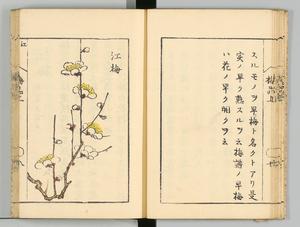 スルモノヲ早梅ト名クトアリ是
実ノ早ク熟スルヲ云梅譜ノ早梅
ハ花ノ早ク開クヲ云
江梅